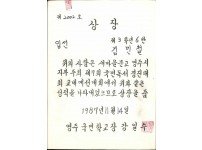 제 2002 호
상 장
입선
제 3 학년 6 반
김 민 철
위의 사람은 새마을운동 영주시
지부 주최 제7회 국민독서경진대회
교내 예선대회에서 위와 같은
성적을 나타내었으므로 상장을 줌
1987년 11월 14일
영주 국민학교장 강